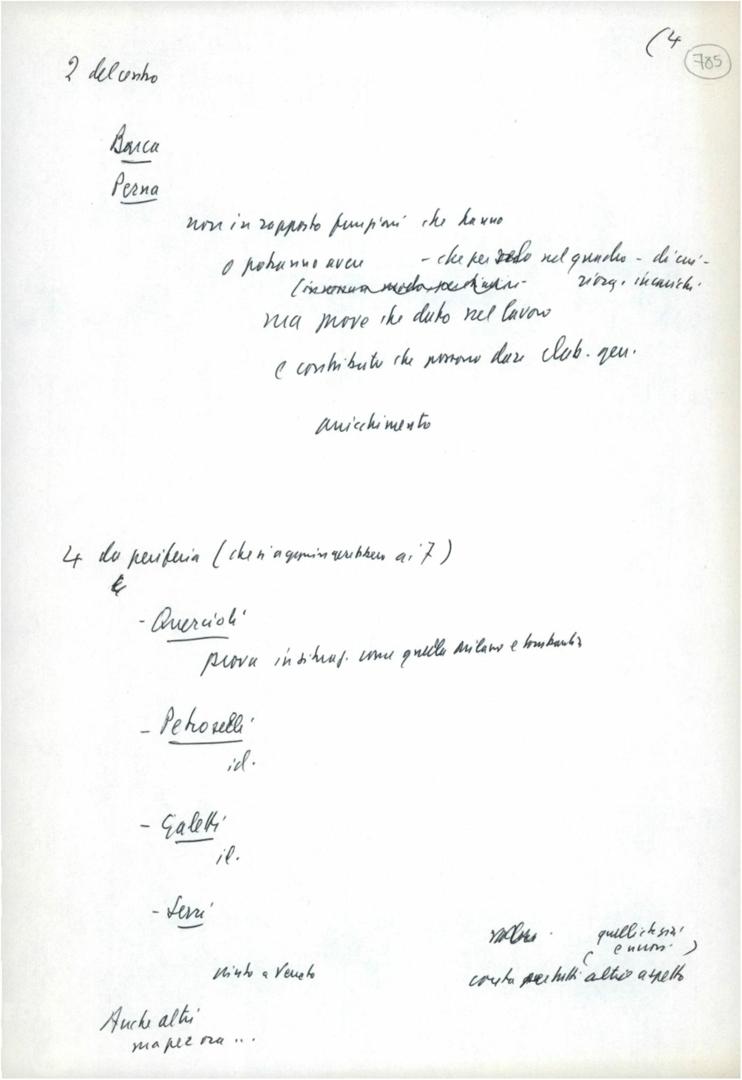 (4
785
2 del centro
Barca
Perna
non in rapporto funzioni che hanno
o potranno avere - che per nel quadro - di
riorg. incarichi.
ma prove che dato nel lavoro
e contributo che possono dare elab. gen.
arricchimento
4 da periferia (che si aggiungerebbero ai 7)
- Quercioli
prova in situaz. come quella Milano e Lombardia
- Petroselli
id.
- Galetti
id.
- Serri
aiuto a Veneto
quelli che
conta altro aspetto
Anche altri
ma per ora ...